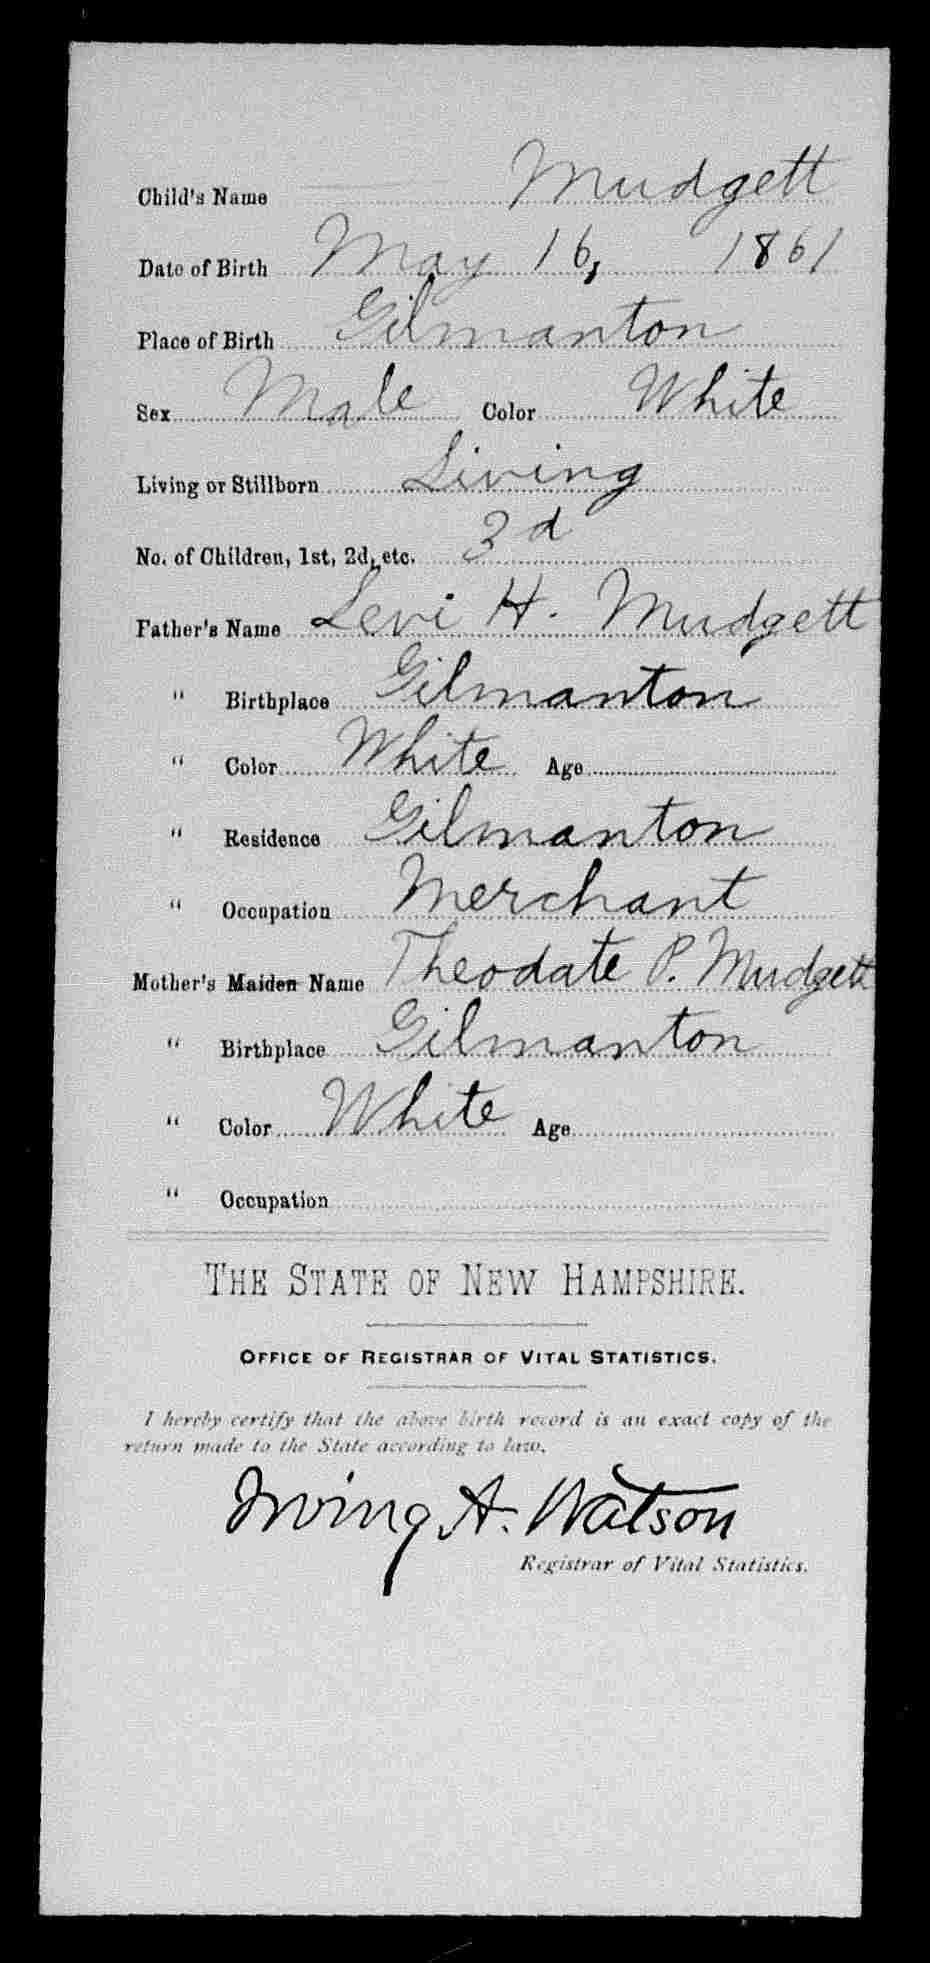 Child's Name Mudgett
Date of Birth May 16, 1861
Place of Birth Gilmanton
Sex Male Color White
Living or Stillborn Living
No. of Children, 1st, 2d, etc. 3d
Father's Name Levi H. Mudgett
" Birthplace Gilmanton
" Color White Age
" Residence Gilmanton
" Occupation Merchant
Mother's Maiden Name Theodate P. Mudgett
" Birthplace Gilmanton
" Color White Age
" Occupation
THE STATE OF NEW HAMPSHIRE.
OFFICE OF REGISTRAR OF VITAL STATISTICS.
I hereby certify that the above birth record is an exact copy of the
return made to the State according to law.
Irving A. Watson
Registrar of Vital Statistics.